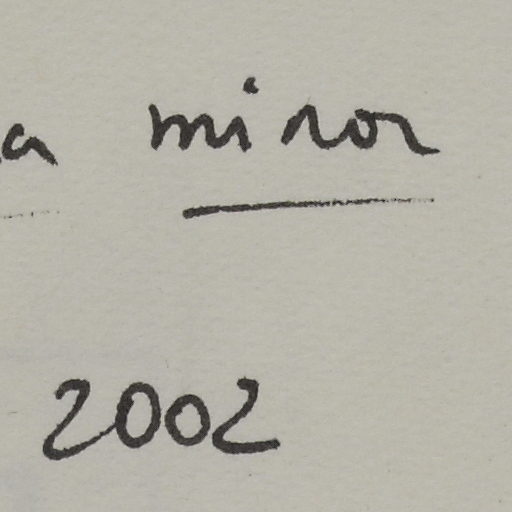 a minor
2002